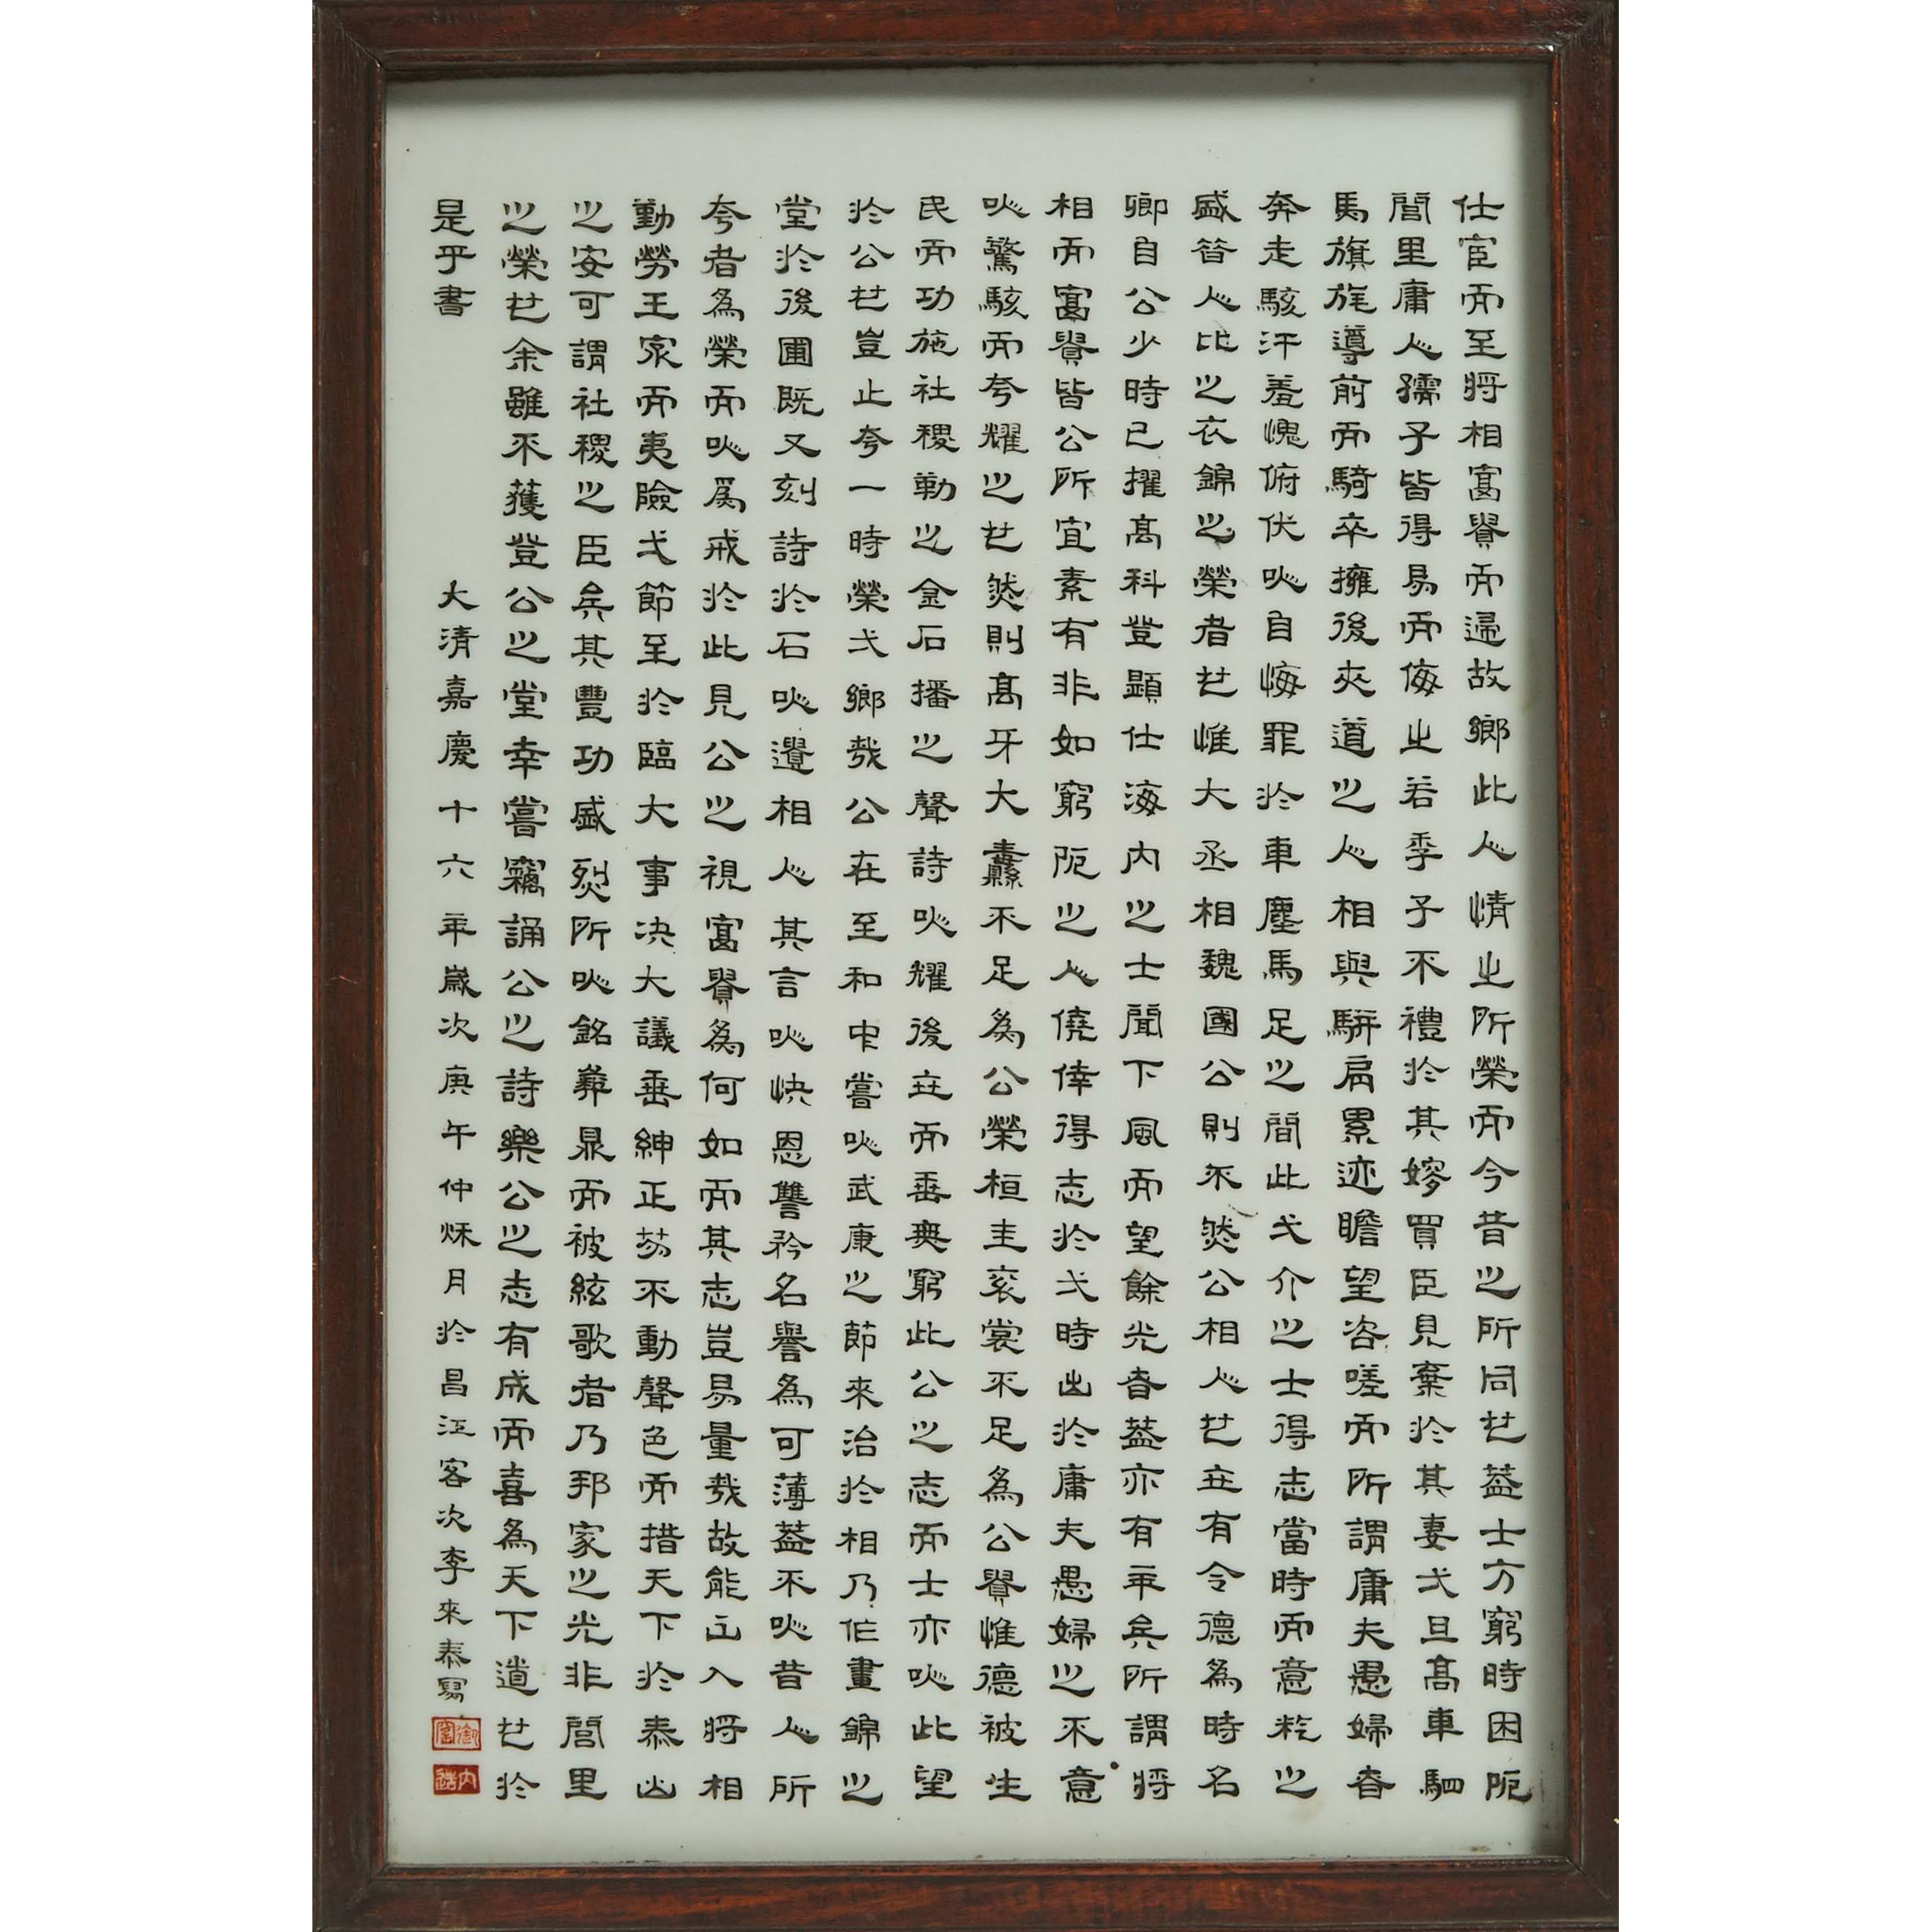 仕宦而至將相富貴而歸故鄉此人情之所榮而今昔之所同也蓋士方窮時困阨
閭里庸人孺子皆得易而侮之若季子不禮於其嫂買臣見棄於其妻弌旦高車駟
馬旗旄導前而騎卒擁後夾道之人相與駢肩累迹瞻望咨嗟而所謂庸夫愚婦者
奔走駭汗羞愧俯伏以自悔罪於車塵馬足之間此弌介之士得志當時而意氣之
盛昔人比之衣錦之榮者也惟大丞相魏國公則不然公相人也世有令德為時名
卿自公少時已擢高科登顯仕海內之士聞下風而望餘光者蓋亦有年矣所謂將
相而富貴皆公所宜素有非如窮阨之人僥倖得志於弌時出於庸夫愚婦之不意
以驚駭而夸耀之也然則高牙大纛不足為公榮桓圭袞裳不足為公貴惟德被生
民而功施社稷勒之金石播之聲詩以耀後世而垂無窮此公之志而士亦以此望
於公也豈止夸一時榮弌鄉哉公在至和中嘗以武康之節來治於相乃作晝錦之
堂於後圃既又刻詩於石以遺相人其言以快恩讐矜名譽為可薄蓋不以昔人所
夸者為榮而以為戒於此見公之視富貴為何如而其志豈易量哉故能出入將相
勤勞王家而夷險弌節至於臨大事决大議垂紳正笏不動聲色而措天下於泰山
之安可謂社稷之臣矣其豐功盛烈所以銘彝鼎而被絃歌者乃邦家之光非閭里
之榮也余雖不獲登公之堂幸嘗竊誦公之詩樂公之志有成而喜為天下道也於
是乎書 大清嘉慶十六年歲次庚午仲秌月於昌江客次李來泰寫
御窑
内造